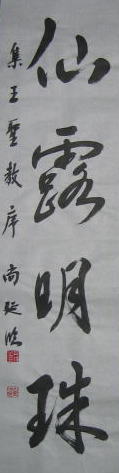 仙露明珠
集王聖教序 尚延